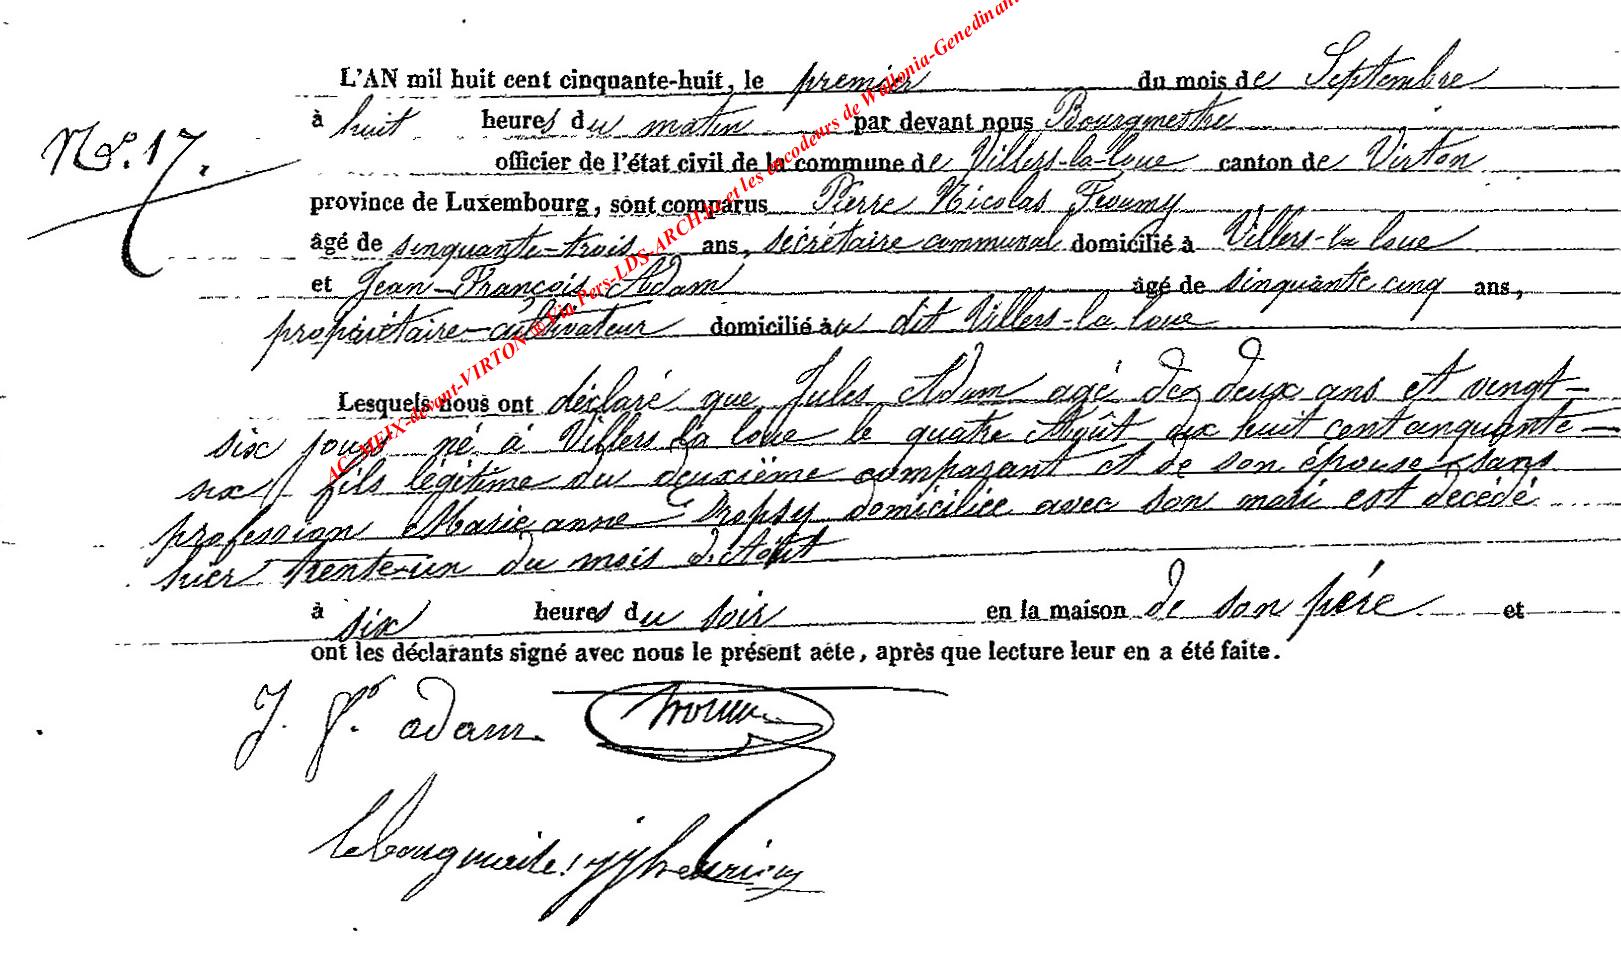 L'AN mil huit cent cinquante-huit, le premier du mois de Septembre
à huit heures du matin par devant nous Bourgmestre
N°. 17.
officier de l'état civil de la commune de Villers-la-loue canton de Virton
province de Luxembourg, sont comparus Pierre Nicolas
âgé de sinquante-trois ans, sécrétaire communal domicilié à Villers-la loue
et Jean-François Adam âgé de sinquante cinq ans,
propriétaire-cultivateur domicilié au dit Villers-la loue
Lesquels nous ont déclaré que Jules Adam agé de deux ans et vingt-
six jours né à Villers la loue le quatre Août dix huit cent cinquante-
six fils légitime du deuxième comparant et de son épouse sans
profession Marie anne Dropsy domiciliée avec son mari est décédé
hier trente-un du mois d'Août
à six heures du soir en la maison de son père et
ont les déclarants signé avec nous le présent acte, après que lecture leur en a été faite.
J. f. adam.
AC-MEIX-devant-VIRTON ® Via Pers-LDS-ARCH et les encodeurs de Wallonia-Genedinant